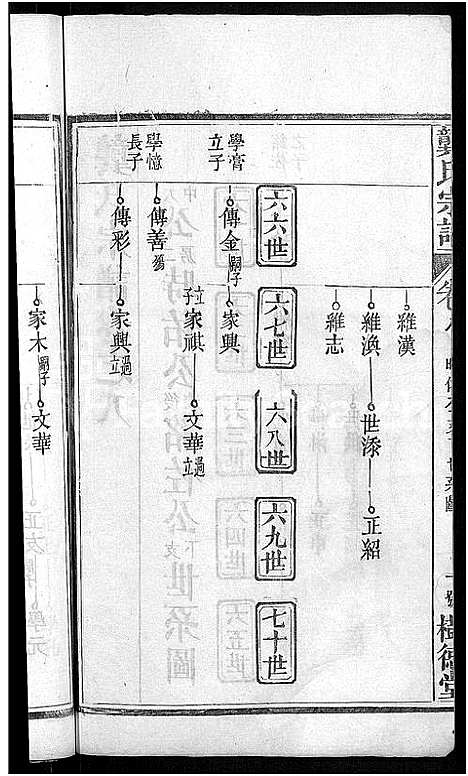 龔氏宗譜
卷八
樹德堂
維漢
維渙 世添 正紹
維志
六六世
六七世
六八世
六九世
七十世
學膏立子
傳金嗣子 家興
立子家祺 文華過立
學憶長子
傳善殤
傳彩 家興過立
家木嗣子 文華